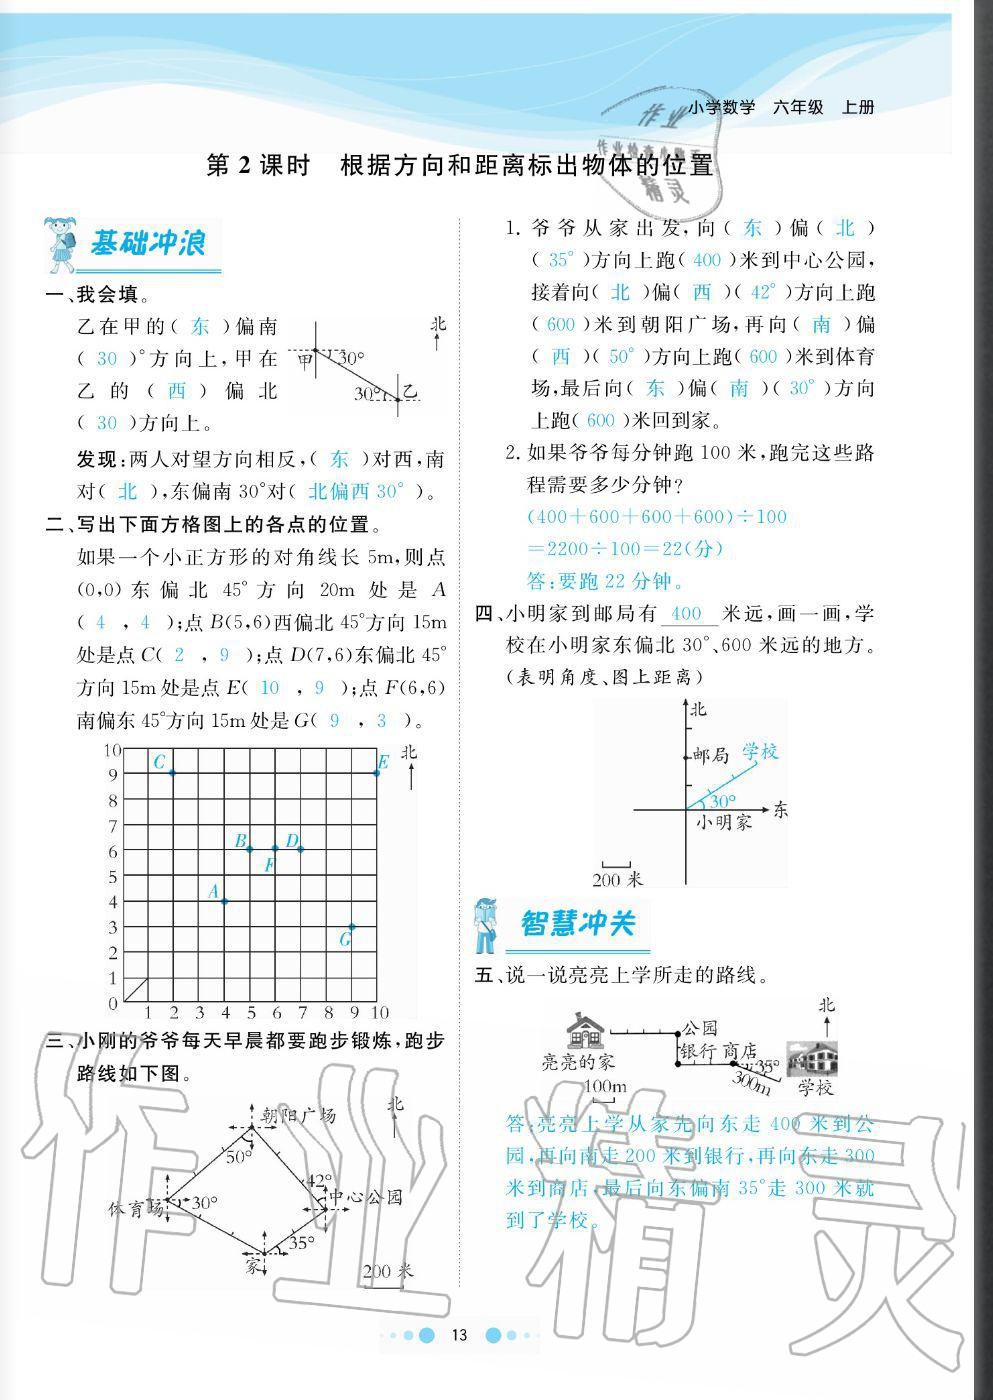 小学数学 六年级 上册
作业
作业检查小助手
精灵
第2课时 根据方向和距离标出物体的位置
基础冲浪
一、我会填。
乙在甲的( 东 )偏南
( 30 )°方向上,甲在
乙的( 西 )偏北
( 30 )方向上。
北
甲
30°
30°
乙
发现:两人对望方向相反,( 东 )对西,南
对( 北 ),东偏南30°对( 北偏西30° )。
二、写出下面方格图上的各点的位置。
如果一个小正方形的对角线长5m,则点
(0,0)东偏北45°方向20m处是A
( 4 , 4 );点B(5,6)西偏北45°方向15m
处是点C( 2 , 9 );点D(7,6)东偏北45°
方向15m处是点E( 10 , 9 );点F(6,6)
南偏东45°方向15m处是G( 9 , 3 )。
北
10
9
8
7
6
5
4
3
2
1
0
1 2 3 4 5 6 7 8 9 10
C
E
B
D
F
A
G
三、小刚的爷爷每天早晨都要跑步锻炼,跑步
路线如下图。
北
朝阳广场
50°
42°
体育场
30°
中心公园
35°
家
200米
1. 爷爷从家出发,向( 东 )偏( 北 )
( 35° )方向上跑( 400 )米到中心公园,
接着向( 北 )偏( 西 )( 42° )方向上跑
( 600 )米到朝阳广场,再向( 南 )偏
( 西 )( 50° )方向上跑( 600 )米到体育
场,最后向( 东 )偏( 南 )( 30° )方向
上跑( 600 )米回到家。
2. 如果爷爷每分钟跑100米,跑完这些路
程需要多少分钟?
(400+600+600+600)÷100
=2200÷100=22(分)
答:要跑22分钟。
四、小明家到邮局有 400 米远,画一画,学
校在小明家东偏北30°、600米远的地方。
(表明角度、图上距离)
北
邮局
学校
30°
东
小明家
200米
智慧冲关
五、说一说亮亮上学所走的路线。
北
公园
银行 商店
35°
300m
亮亮的家
学校
100m
答:亮亮上学从家先向东走400米到公
园,再向南走200米到银行,再向东走300
米到商店,最后向东偏南35°走300米就
到了学校。
13
作业精灵